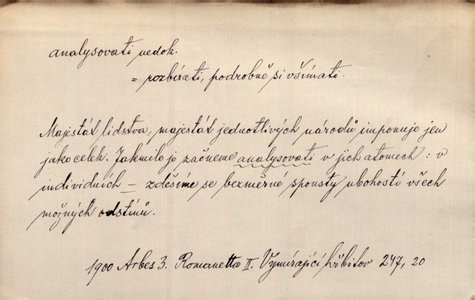 analysovati nedok.
= rozbírati, podrobně si všímati.
Majestát lidstva, majestát jednotlivých národů imponuje jen
jako celek. Jakmile je začneme analysovati v jich atomech: v
individuích — zděsíme se bezměrné spousty ubohostí všech
možných odstínů.
1900 Arbes 3. Romanetta II. Vymírající hřbitov 247, 20